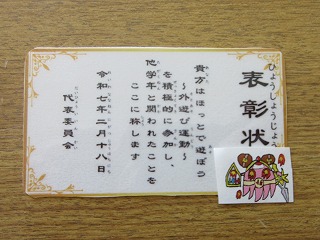 ひょうしょうじょう
表彰状
貴方はほっとで遊ぼう
～外遊び運動～
を積極的に参加し、
他学年と関われたことを
ここに称します
令和七年二月十八日
代表委員会